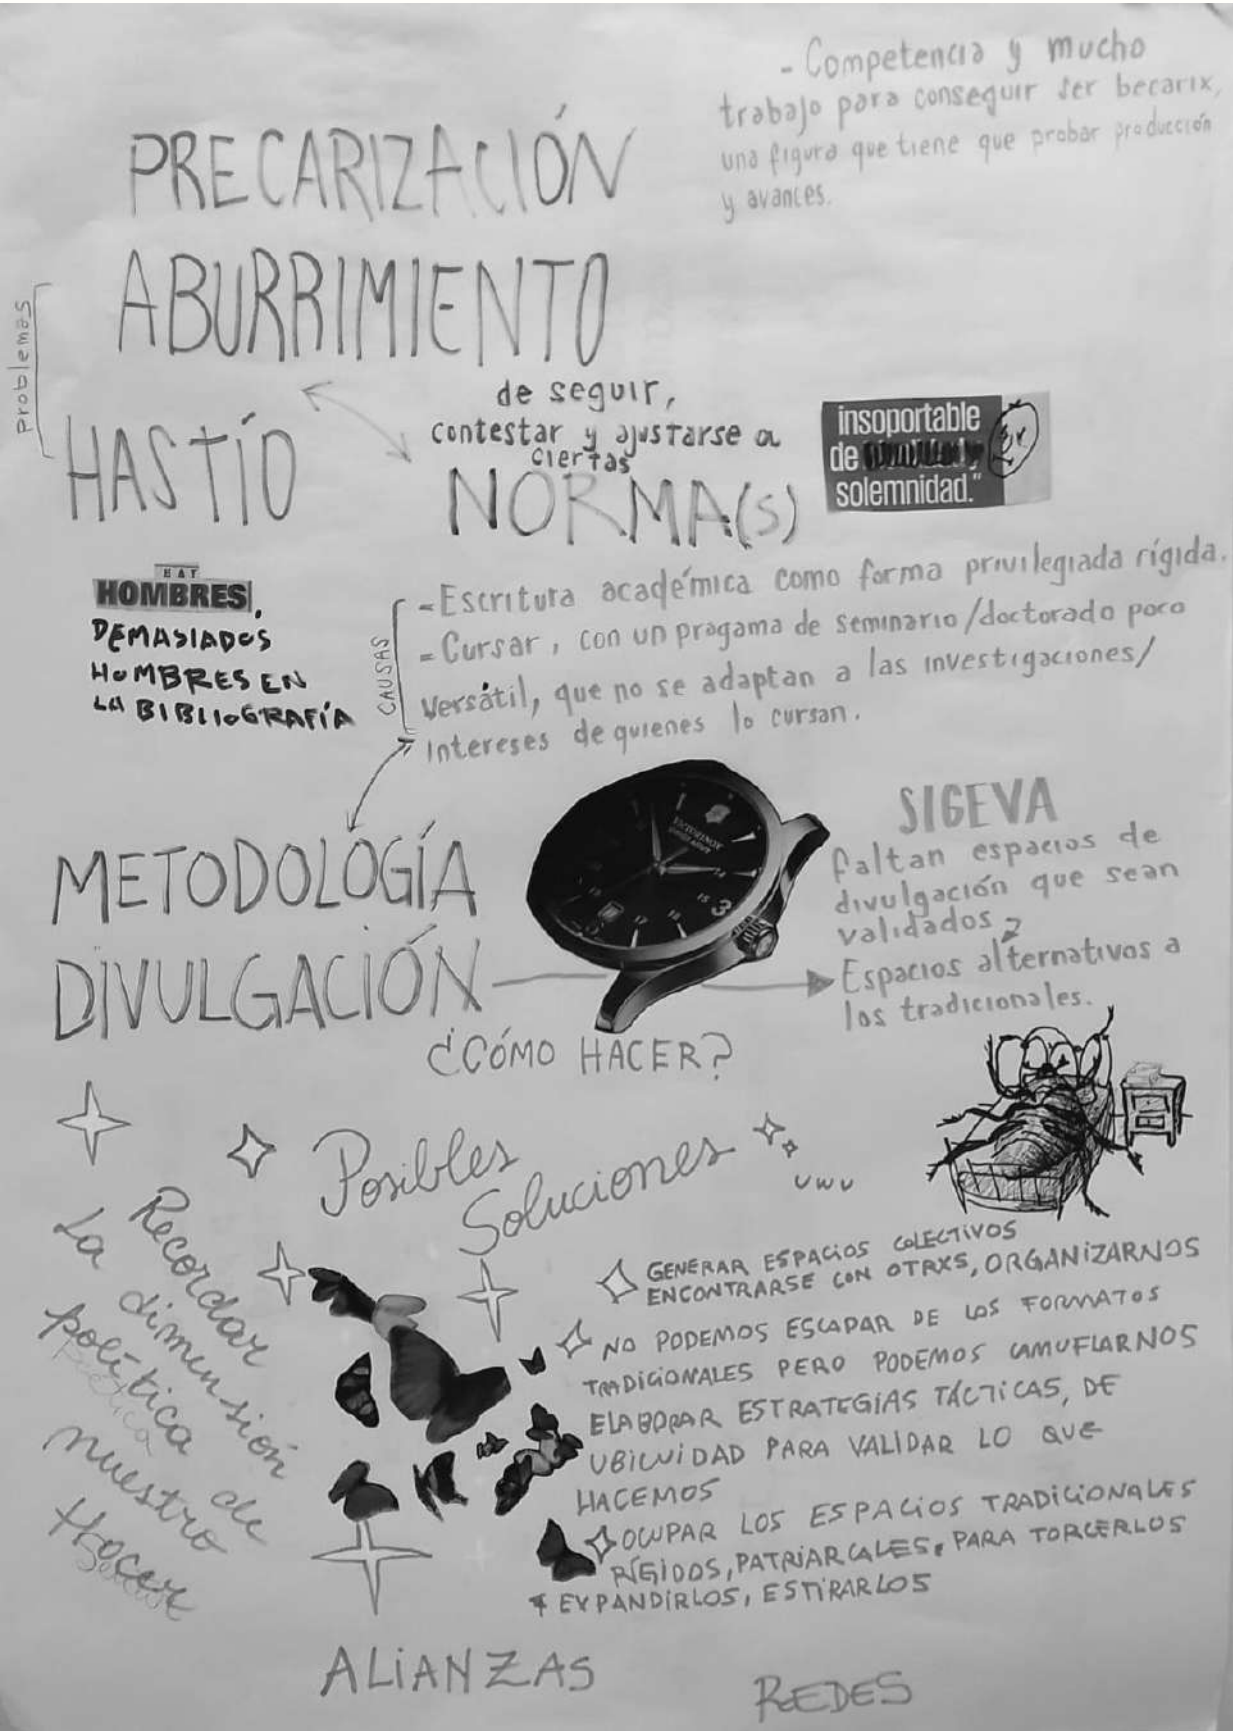 - Competencia y mucho
trabajo para conseguir ser becarix,
una figura que tiene que probar producción
y avances.
PRECARIZACIÓN
ABURRIMIENTO
Problemas
HASTÍO
de seguir,
contestar y ajustarse a
ciertas
NORMA(S)
insoportable
de
solemnidad."
HAY
HOMBRES,
DEMASIADOS
HOMBRES EN
LA BIBLIOGRAFÍA
CAUSAS
- Escritura académica como forma privilegiada rígida.
- Cursar, con un progama de seminario/doctorado poco
versátil, que no se adaptan a las investigaciones/
intereses de quienes lo cursan.
METODOLOGÍA
DIVULGACIÓN
VICTORINOX
SWISS ARMY
SIGEVA
faltan espacios de
divulgación que sean
validados
Espacios alternativos a
los tradicionales.
¿CÓMO HACER?
Posibles
Soluciones
UWU
Recordar
La dimensión
política de
poética
nuestro
Hacer
GENERAR ESPACIOS COLECTIVOS
ENCONTRARSE CON OTRXS, ORGANIZARNOS
NO PODEMOS ESCAPAR DE LOS FORMATOS
TRADICIONALES PERO PODEMOS CAMUFLARNOS
ELABORAR ESTRATEGIAS TÁCTICAS, DE
UBICUIDAD PARA VALIDAR LO QUE
HACEMOS
OCUPAR LOS ESPACIOS TRADICIONALES
RÍGIDOS, PATRIARCALES, PARA TORCERLOS
+ EXPANDIRLOS, ESTIRARLOS
ALIANZAS
REDES